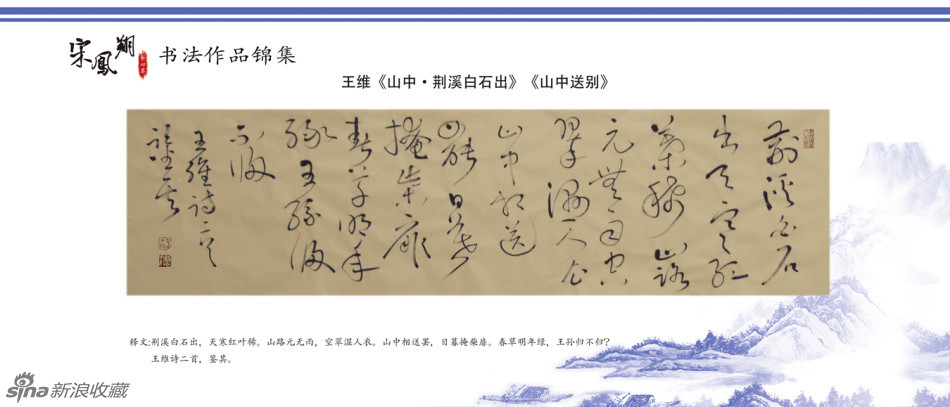 宋鳳翔 书法作品锦集
王维《山中·荆溪白石出》《山中送别》
荊溪白石
出天寒紅
葉稀山路
元無雨空
翠濕人衣
山中相送
罷日暮
掩柴扉
春草明年
綠王孫歸
不歸
王維詩二首
释文:荆溪白石出，天寒红叶稀。山路元无雨，空翠湿人衣。山中相送罢，日暮掩柴扉。春草明年绿，王孙归不归?
王维诗二首，鉴其。
sina新浪收藏